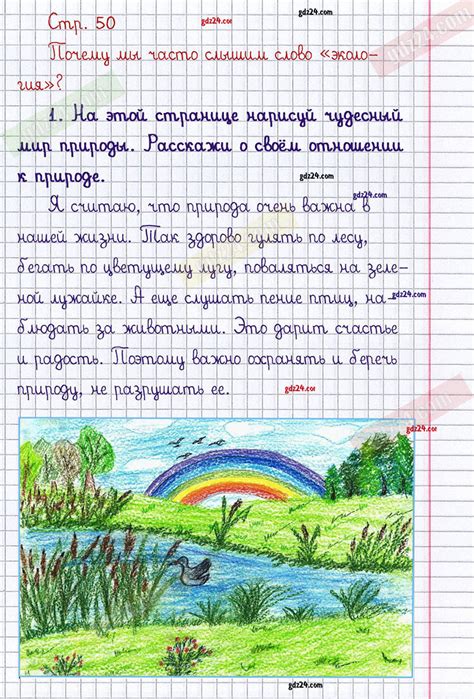 gdz24.com
Стр. 50
gdz24.com
Почему мы часто слышим слово «эколо-
гия»?
gdz24.com
1. На этой странице нарисуй чудесный
мир природы. Расскажи о своём отношении
к природе.
gdz24.com
gdz24.com
Я считаю, что природа очень важна в
нашей жизни. Так здорово гулять по лесу,
бегать по цветущему лугу, поваляться на зеле-
ной лужайке. А еще слушать пение птиц, на-
gdz24.com
блюдать за животными. Это дарит счастье
и радость. Поэтому важно охранять и беречь
природу, не разрушать ее.
gdz24.com
gdz24.com
gdz24.com